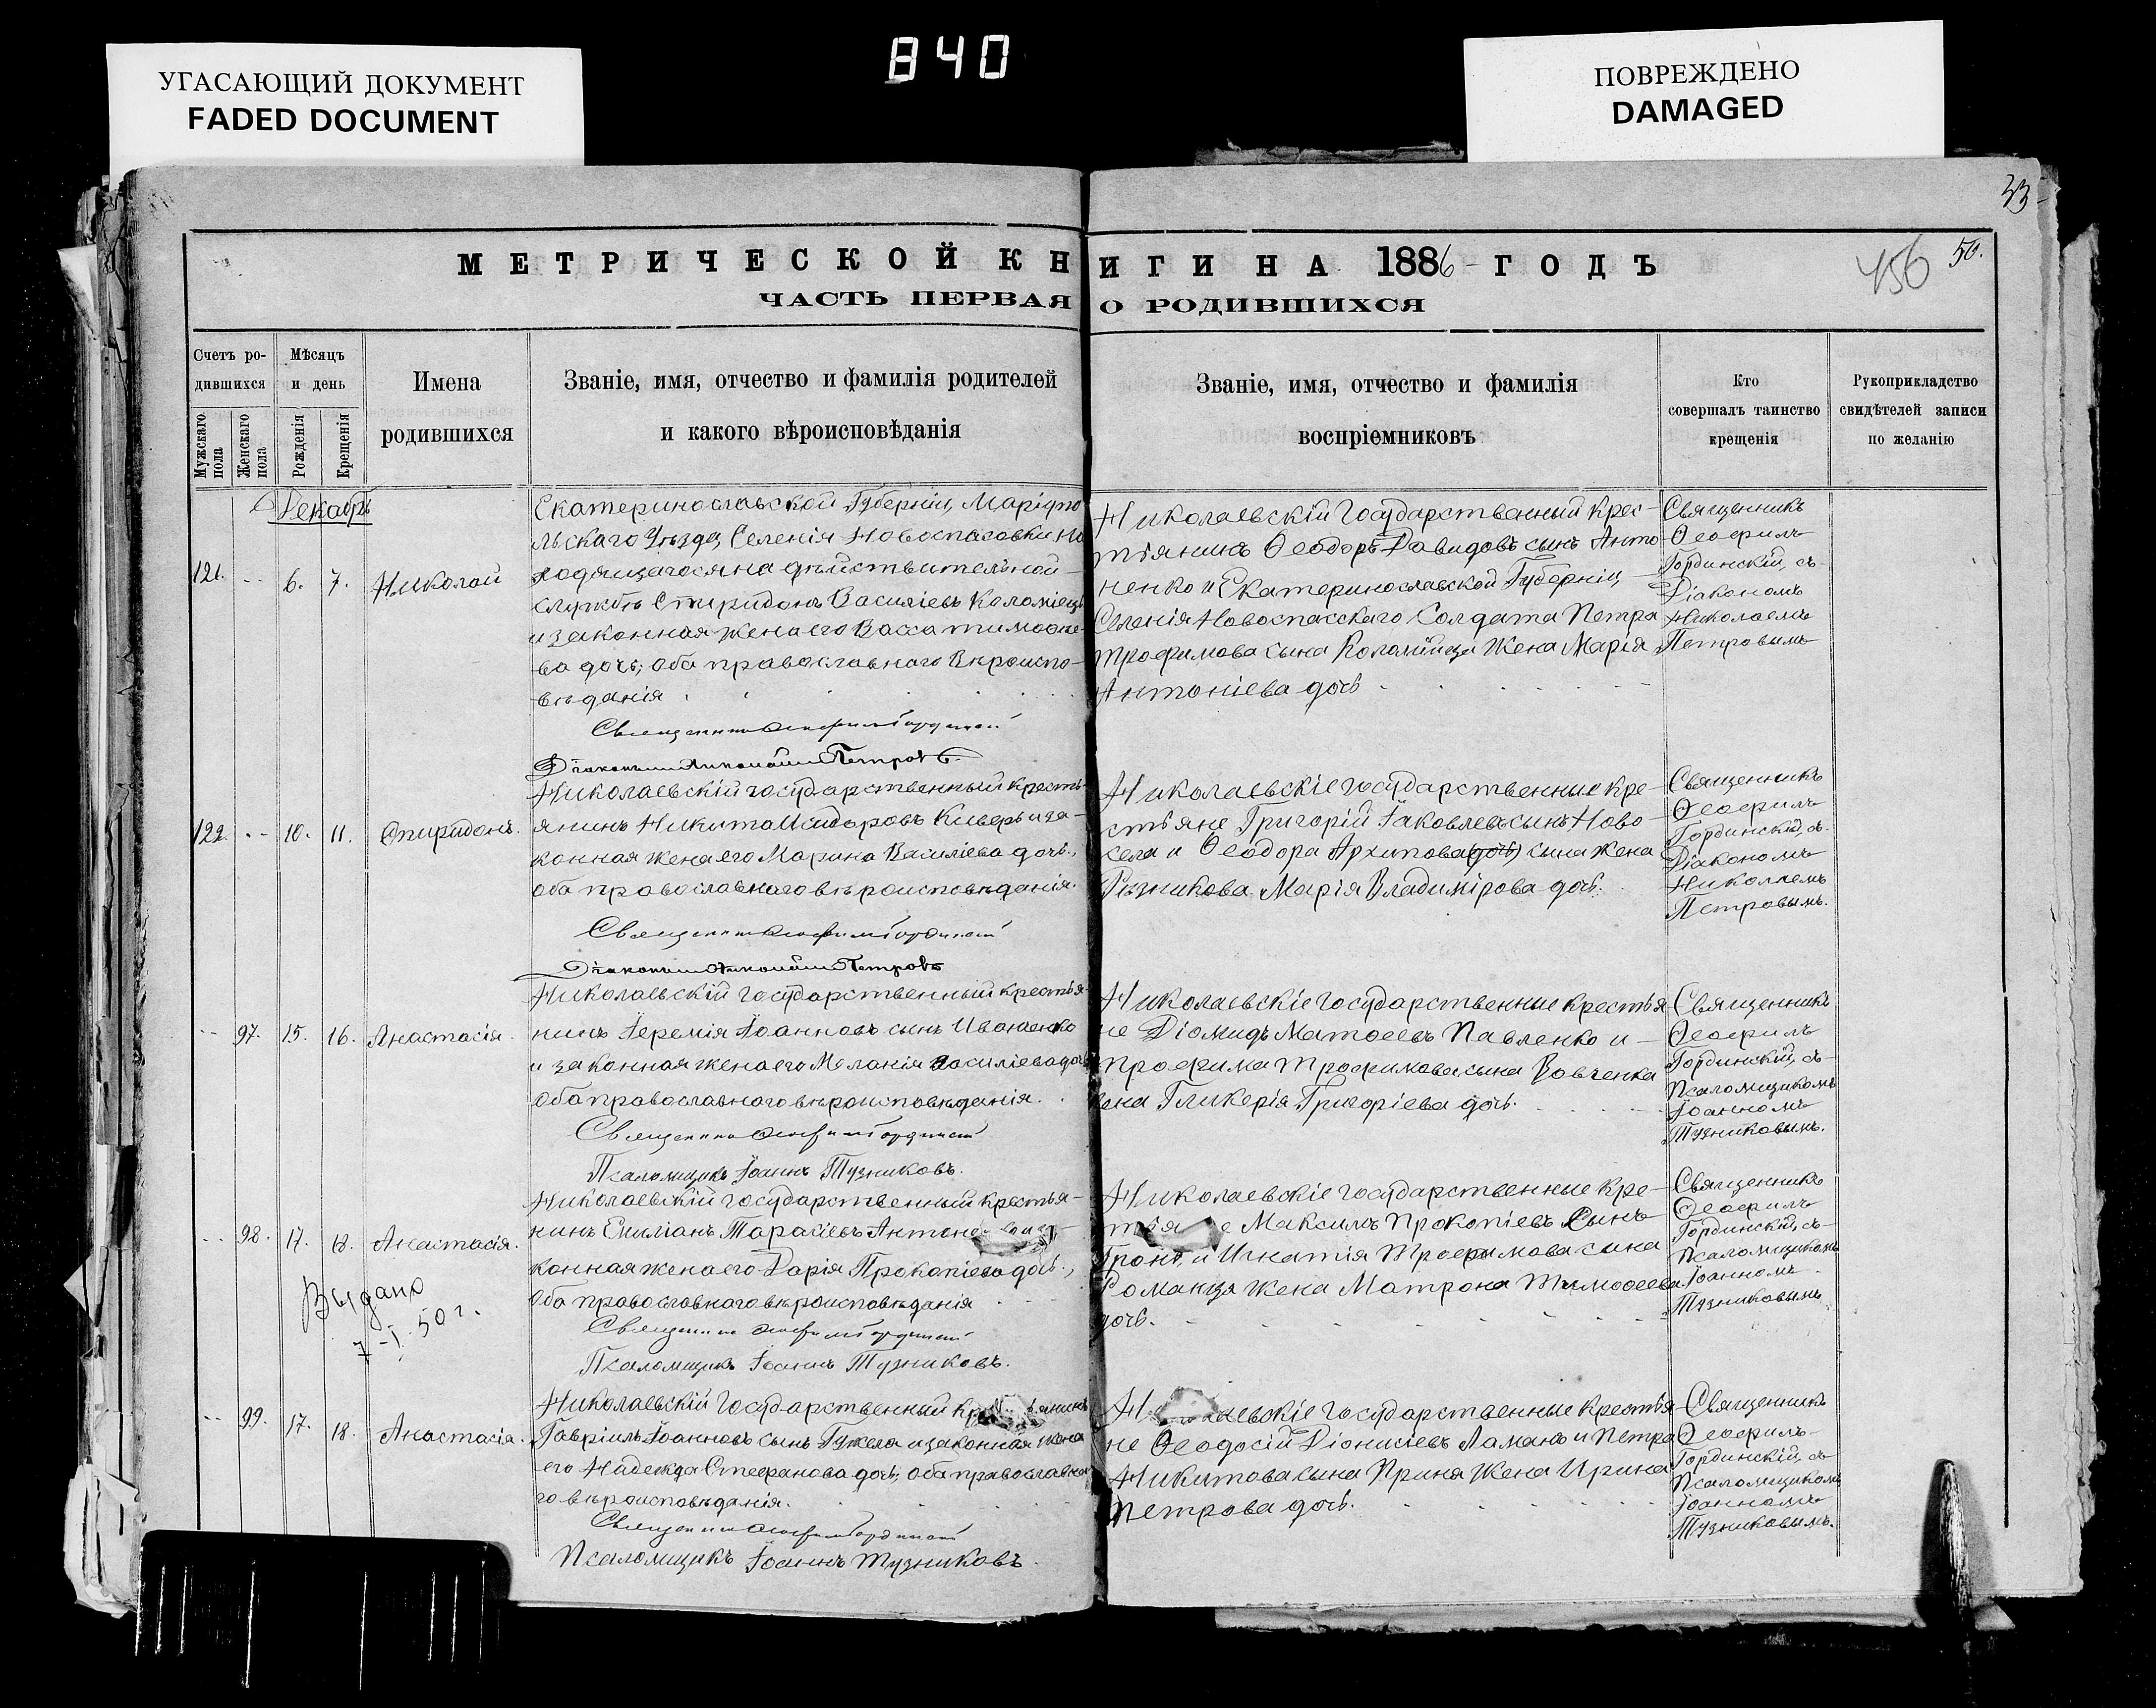 840
УГАСАЮЩИЙ ДОКУМЕНТ
FADED DOCUMENT
ПОВРЕЖДЕНО
DAMAGED
33
456 50.
МЕТРИЧЕСКОЙ КНИГИ НА 1886 ГОДЪ
ЧАСТЬ ПЕРВАЯ О РОДИВШИХСЯ
Счетъ ро-
дившихся
Мужскаго пола
Женскаго пола
Мѣсяцъ
и день
Рожденія
Крещенія
Имена
родившихся
Званіе, имя, отчество и фамилія родителей
и какого вѣроисповѣданія
Званіе, имя, отчество и фамилія
воспріемниковъ
Кто
совершалъ таинство
крещенія
Рукоприкладство
свидѣтелей записи
по желанію
Декабрь
121. 6. 7. Николай
Екатеринославской Губерніи, Маріупо
льскаго Уѣзда, Селенія Новоспасовки, на
ходящагося на дѣйствительной
службѣ Спиридонъ Василіевъ Коломіецъ
и законная жена его Васса Тимоѳее-
ва дочь; оба православнаго вѣроиспо-
вѣданія
Священникъ Ѳеофилъ Гординскій
Діаконъ Николай Петровъ.
Николаевскій Государственный крес-
тьянинъ Ѳеодоръ Давидовъ сынъ Анто
ненко и Екатеринославской Губерніи
Селенія Новоспасскаго Солдата Петра
Трофимова сына Коломійца жена Марія
Антоніева дочь
Священникъ
Ѳеофилъ
Гординскій, съ
Діакономъ
Николаемъ
Петровымъ
122. 10. 11. Спиридонъ.
Николаевскій государственный кресть-
янинъ Никита Исидоровъ Киверъ и за-
конная жена его Марина Василіева дочь,
оба православнаго вѣроисповѣданія.
Священникъ Ѳеофилъ Гординскій
Діаконъ Николай Петровъ
Николаевскіе государственные кре-
стьяне Григорій Іаковлевъ сынъ Ново
села и Ѳеодора Архипова (дочь) сына жена
Рѣзникова Марія Владимірова дочь.
Священникъ
Ѳеофилъ
Гординскій, съ
Діакономъ
Николаемъ
Петровымъ.
97. 15. 16. Анастасія.
Николаевскій государственный крестья-
нинъ Іеремія Іоанновъ сынъ Иваненко
и законная жена его Меланія Василіева дочь
оба православнаго вѣроисповѣданія.
Священникъ Ѳеофилъ Гординскій
Псаломщикъ Іоаннъ Тузниковъ.
Николаевскіе государственные крестья
не Діомидъ Матѳеевъ Павленко и
Трофима Трофимова сына Вовченка
жена Гликерія Григоріева дочь.
Священникъ
Ѳеофилъ
Гординскій, съ
Псаломщикомъ
Іоанномъ
Тузниковымъ.
98. 17. 18. Анастасія.
Выдано
7-I. 50 г.
Николаевскій государственный крестья-
нинъ Емиліанъ Тарасіевъ
конная жена его Дарія Прокопіева дочь,
оба православнаго вѣроисповѣданія
Священникъ Ѳеофилъ Гординскій
Псаломщикъ Іоаннъ Тузниковъ.
Николаевскіе государственные кре-
Максимъ Прокопіевъ Сынъ
и Игнатія Трофимова сына
Романца жена Матрона Тимоѳеева
дочь.
Священникъ
Ѳеофилъ
Гординскій, съ
Псаломщикомъ
Іоанномъ
Тузниковымъ
99. 17. 18. Анастасія.
Николаевскій Государственный
Гавріилъ Іоанновъ сынъ Гужела и законная жена
его Надежда Стефанова дочь, оба православна
го вѣроисповѣданія.
Священникъ Ѳеофилъ Гординскій
Псаломщикъ Іоаннъ Тузниковъ.
государственные крестья
не Ѳеодосій Діонисіевъ Ламанъ и Петра
Никитова сына жена Ирина
Петрова дочь.
Священникъ
Ѳеофилъ
Гординскій, съ
Псаломщикомъ
Іоанномъ
Тузниковымъ.